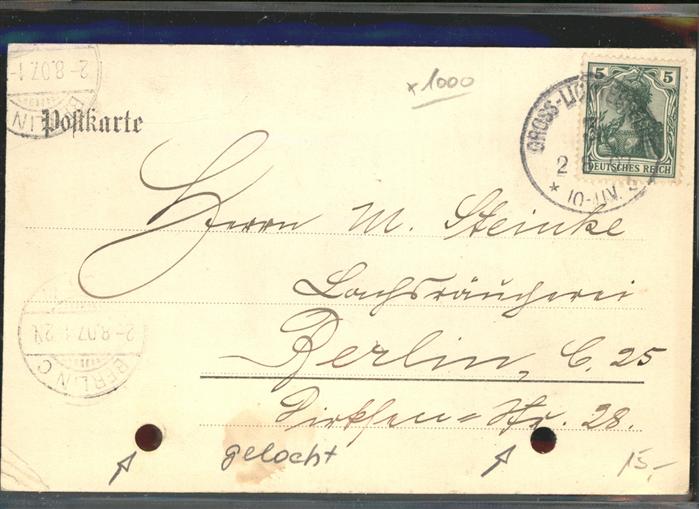 2-8.07.1-
BERLIN
Postkarte
×1000
GROSS-LICHTERFELDE
2.8.07
* 10-11V. *
5 5
DEUTSCHES REICH
Herrn M. Steinke
Lachsräucherei
Berlin, C. 25
Dirksen=Str. 28.
2-8.07.1-2N
BERLIN C
gelocht
15,-